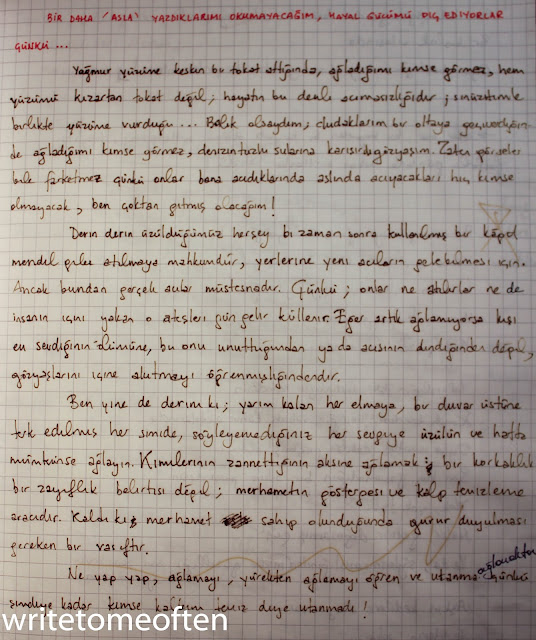 BİR DAHA (ASLA) YAZDIKLARIMI OKUMAYACAĞIM, HAYAL GÜCÜMÜ PİÇ EDİYORLAR
ÇÜNKÜ ...
Yağmur yüzüme keskin bir tokat attığında, ağladığımı kimse görmez, hem
yüzümü kızartan tokat değil; hayatın bu denli acımasızlığıdır;
birlikte yüzüme vurduğu ... Balık olsaydım; dudaklarım bir oltaya
de ağladığımı kimse görmez, denizin tuzlu sularına karışırdı gözyaşım. Zaten görseler
bile farketmez çünkü onlar bana acıdıklarında aslında acıyacakları hiç kimse
olmayacak, ben çoktan gitmiş olacağım!
Derin derin üzüldüğümüz herşey bi zaman sonra kullanılmış bir kâğıt
mendil gibi atılmaya mahkumdur, yerlerine yeni acıların gelebilmesi için.
Ancak bundan gerçek acılar müstesnadır. Çünkü; onlar ne atılırlar ne de
insanın içini yakan o ateşleri gün gelir küllenir. Eğer artık ağlamıyorsa kişi
en sevdiğinin ölümüne, bu onu unuttuğundan ya da acısının dindiğinden değil,
gözyaşlarını içine akıtmayı öğrenmişliğindendir.
Ben yine de derim ki; yarım kalan her elmaya, bir duvar üstüne
terk edilmiş her simide, söyleyemediğiniz her sevgiye üzülün ve hatta
mümkünse ağlayın. Kimilerinin zannettiğinin aksine ağlamak; bir korkaklık
bir zayıflık belirtisi değil; merhametin göstergesi ve kalp temizleme
aracıdır. Kaldı ki; merhamet sahip olunduğunda gurur duyulması
gereken bir vasıftır.
Ne yap yap, ağlamayı, yürekten ağlamayı öğren ve utanma ağlamaktan çünkü
şimdiye kadar kimse kalbim temiz diye utanmadı!
writetomeoften